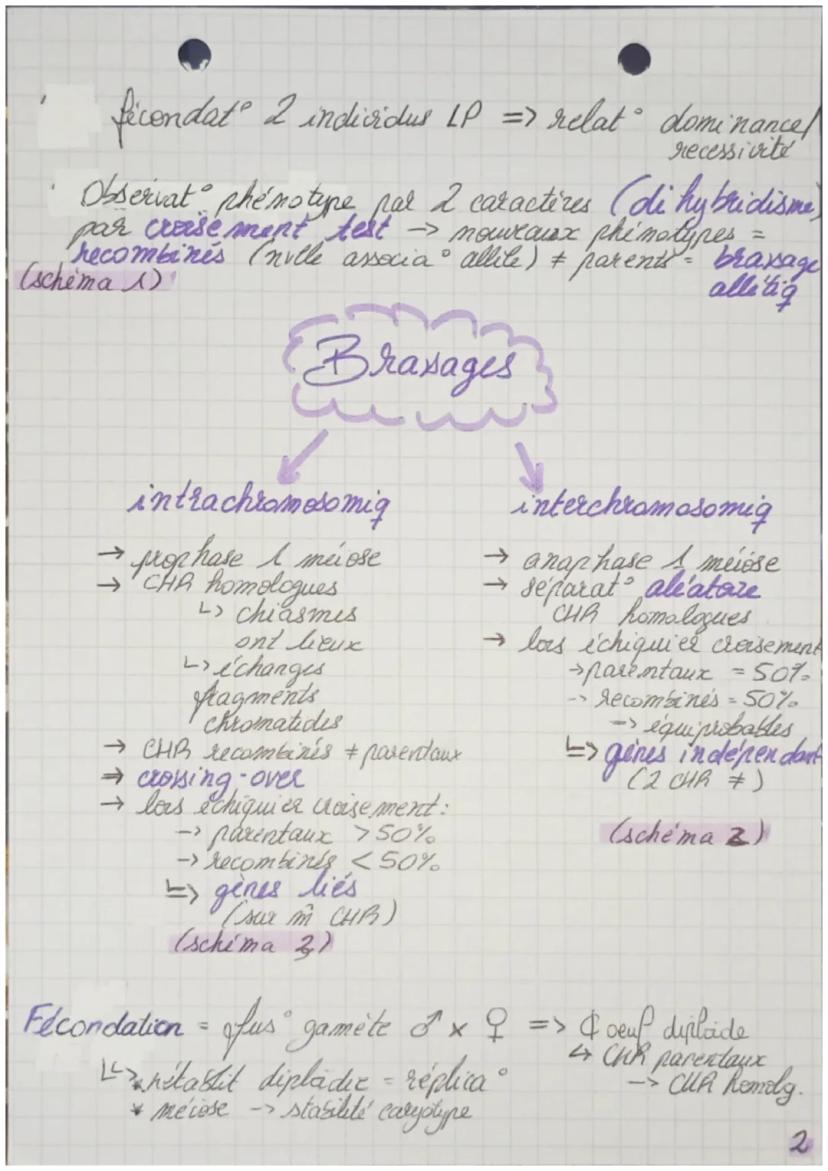 fécondat° 2 individus LP => relat° dominance/
recessivité
Observat° phénotype par 2 caractères (di hybridisme)
par croisement test -> nouveaux phénotypes =
recombinés (nvlle associa° allèle) ≠ parents = brassage
(schéma 1) alléliq
Brassages
intrachromosomiq
-> prophase 1 méiose
-> CHR homologues
↳ chiasmes
ont lieux
↳ échanges
fragments
chromatides
-> CHR recombinés ≠ parentaux
=> crossing-over
-> lors échiquier croisement :
-> parentaux > 50%
-> recombinés < 50%
↳> gènes liés
(sur m̂ CHR)
(schéma 3)
interchromosomiq
-> anaphase 1 méiose
-> séparat° aléatoire
CHR homologues
-> lors échiquier croisement
-> parentaux = 50%
-> recombinés = 50%
-> équiprobables
↳> gènes indépendant
(2 CHR ≠)
(schéma 2)
Fécondation = fus° gamète ♂ x ♀ => ₵ oeuf diploïde
↳ CHR parentaux
-> CHR homolg.
↳> * rétablit diploïdie = réplica°
* méiose -> stabilité caryotype
2